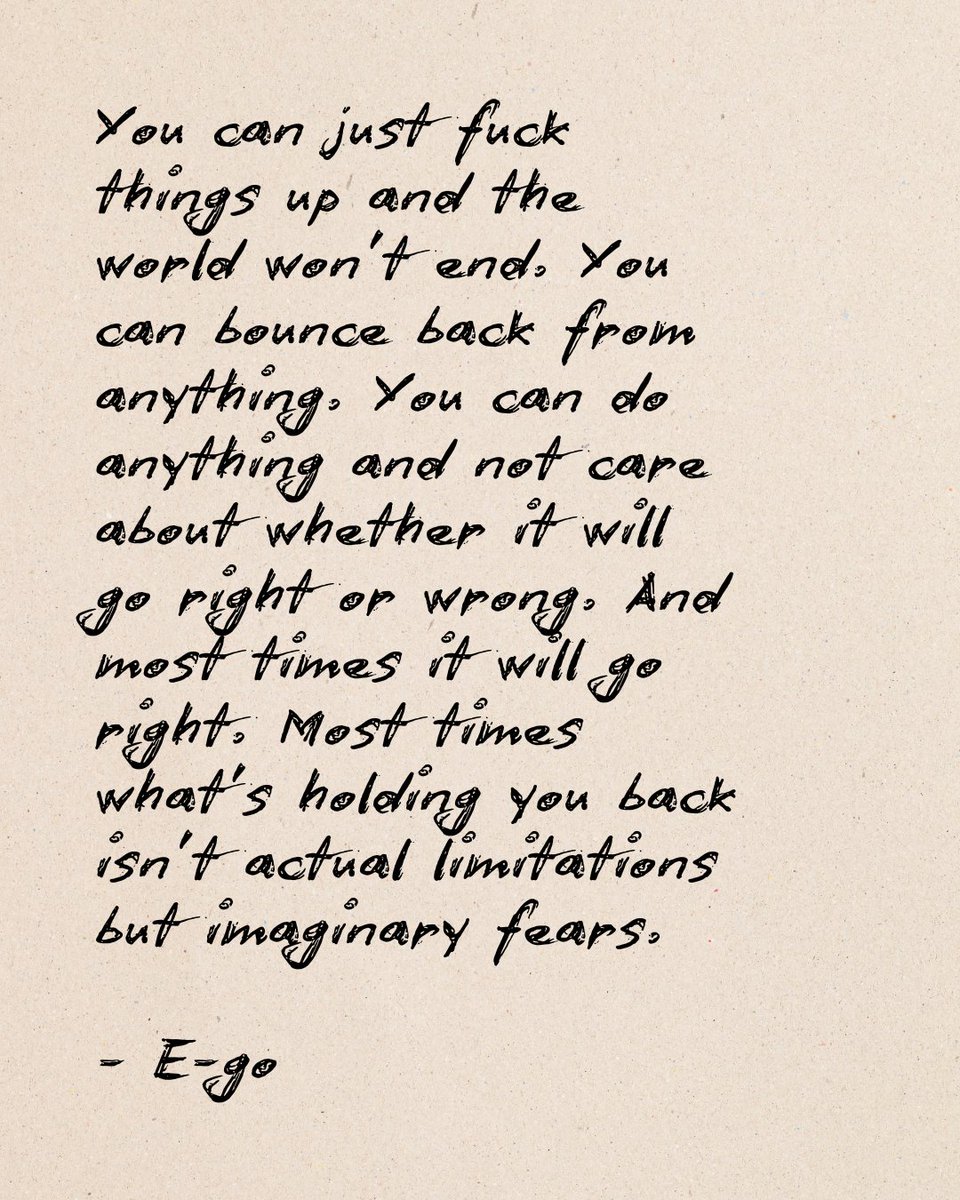 You can just fuck
things up and the
world won't end. You
can bounce back from
anything. You can do
anything and not care
about whether it will
go right or wrong. And
most times it will go
right. Most times
what's holding you back
isn't actual limitations
but imaginary fears.
- E-go